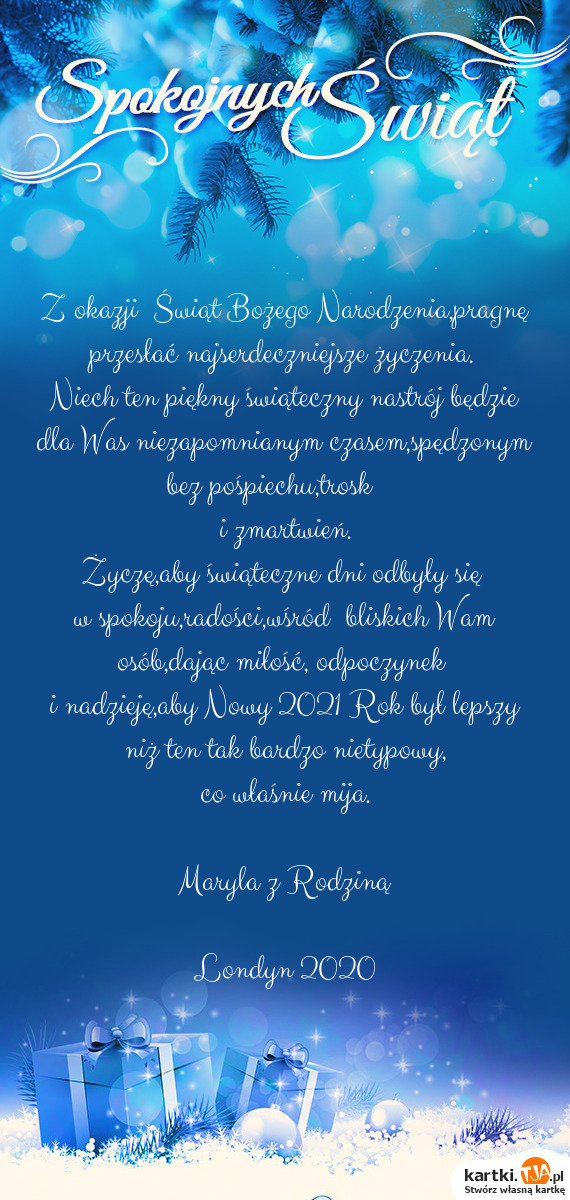 Spokojnych Świąt
Z okazji Świąt Bożego Narodzenia,pragnę
przesłać najserdeczniejsze życzenia.
Niech ten piękny świąteczny nastrój będzie
dla Was niezapomnianym czasem,spędzonym
bez pośpiechu,trosk
i zmartwień.
Życzę,aby świąteczne dni odbyły się
w spokoju,radości,wśród bliskich Wam
osób,dając miłość, odpoczynek
i nadzieję,aby Nowy 2021 Rok był lepszy
niż ten tak bardzo nietypowy,
co właśnie mija.
Maryla z Rodziną
Londyn 2020
kartki.TJA.pl
Stwórz własną kartkę